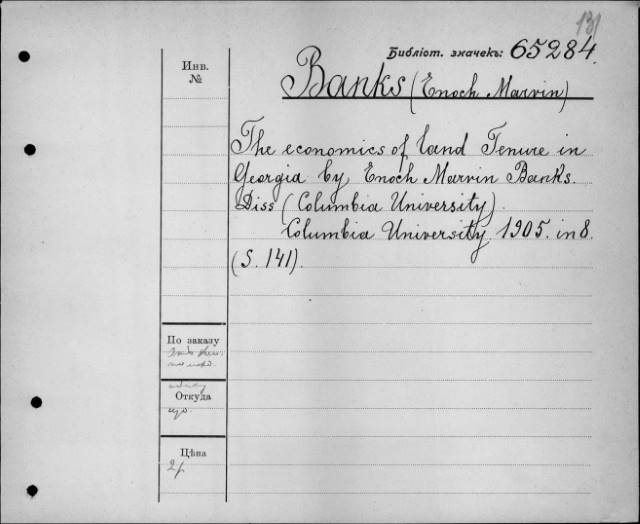 131
Библіот. значекъ: 65284.
Инв.
№
Banks (Enoch Marvin)
The economics of land Tenure in
Georgia by Enoch Marvin Banks.
Diss (Columbia University).
Columbia University 1905. in 8.
(S. 141).
По заказу
Откуда
Цѣна
2 р.